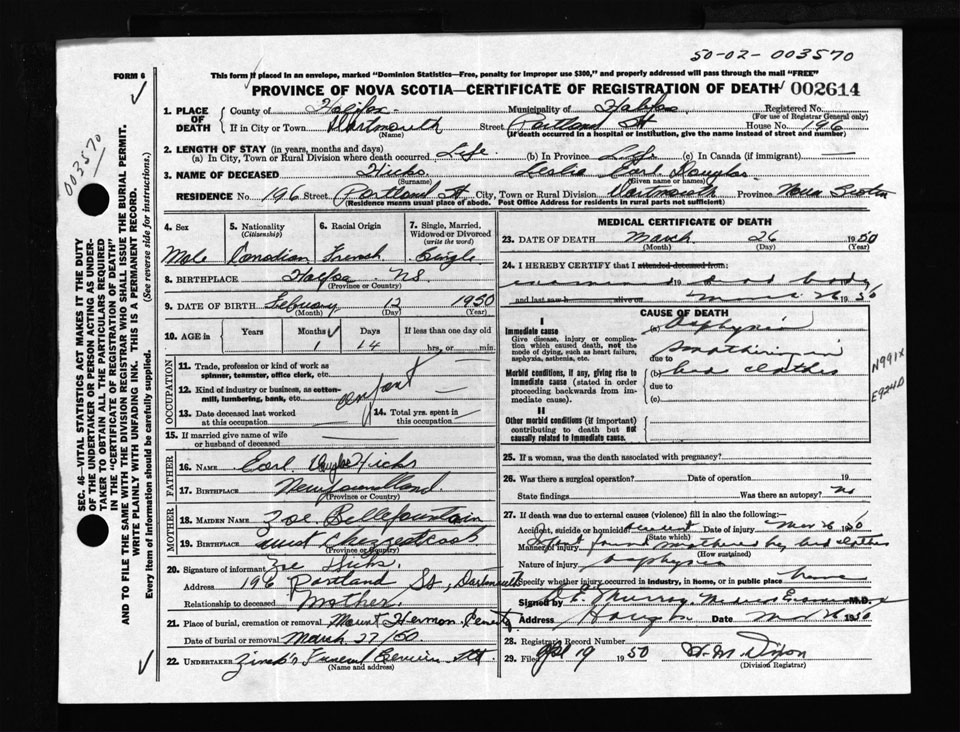 50-02-003570
FORM 6
This form if placed in an envelope, marked "Dominion Statistics—Free, penalty for improper use $300," and properly addressed will pass through the mail "FREE"
PROVINCE OF NOVA SCOTIA—CERTIFICATE OF REGISTRATION OF DEATH 002614
1. PLACE OF DEATH
County of Halifax Municipality of Halifax Registered No.
(For use of Registrar General only)
If in City or Town Dartmouth Street Portland St House No. 196
(Name) (If death occurred in a hospital or institution, give the name instead of street and number)
2. LENGTH OF STAY (in years, months and days)
(a) In City, Town or Rural Division where death occurred Life (b) In Province Life (c) In Canada (if immigrant) —
3. NAME OF DECEASED Hicks Leslie Earl Douglas
(Surname) (Given name or names)
RESIDENCE No. 196 Street Portland St City, Town or Rural Division Dartmouth Province Nova Scotia
(Residence means usual place of abode. Post Office Address for residents in rural parts not sufficient)
4. Sex 5. Nationality (Citizenship) 6. Racial Origin 7. Single, Married, Widowed or Divorced (write the word)
Male Canadian French Single
8. BIRTHPLACE Halifax NS
(Province or Country)
9. DATE OF BIRTH February 12 1950
(Month) (Day) (Year)
10. AGE in Years Months Days If less than one day old
1 14 hrs. or min.
OCCUPATION
11. Trade, profession or kind of work as spinner, teamster, office clerk, etc.
12. Kind of industry or business, as cotton-mill, lumbering, bank, etc.
Infant
13. Date deceased last worked at this occupation
14. Total yrs. spent in this occupation
15. If married give name of wife or husband of deceased
FATHER
16. NAME Earl Douglas Hicks
17. BIRTHPLACE Newfoundland
(Province or Country)
MOTHER
18. MAIDEN NAME Zoe Bellefountain
19. BIRTHPLACE West Chezzetcook
(Province or Country)
20. Signature of informant Zoe Hicks
Address 196 Portland St, Dartmouth
Relationship to deceased Mother
21. Place of burial, cremation or removal Mount Hermon Cemetery
Date of burial or removal March 27/50
22. UNDERTAKER Zink's Funeral Service
(Name and address)
MEDICAL CERTIFICATE OF DEATH
23. DATE OF DEATH March 26 1950
(Month) (Day) (Year)
24. I HEREBY CERTIFY that I attended deceased from:
examined 19 dead body
and last saw h alive on March 26 1950
CAUSE OF DEATH
I
Immediate cause
Give disease, injury or complication which caused death, not the mode of dying, such as heart failure, asphyxia, asthenia, etc.
(a) Asphyxia
due to smothering in
bed clothes
Morbid conditions, if any, giving rise to immediate cause (stated in order proceeding backwards from immediate cause).
(b)
due to
(c)
II
Other morbid conditions (if important) contributing to death but not causally related to immediate cause.
N991X
E924D
25. If a woman, was the death associated with pregnancy?
26. Was there a surgical operation? Date of operation 19
State findings Was there an autopsy? no
27. If death was due to external causes (violence) fill in also the following:
Accident, suicide or homicide? Accident Date of injury Mar 26 1950
(State which)
Manner of injury found smothered by bed clothes
(How sustained)
Nature of injury asphyxia
Specify whether injury occurred in industry, in home, or in public place home
Signed by D. E. Murray Medical Examiner M.D.
Address Date Mar 26 1950
28. Registrar's Record Number
29. Filed 19 1950 H. M. Dixon
(Division Registrar)
SEC. 46—VITAL STATISTICS ACT MAKES IT THE DUTY
OF THE UNDERTAKER OR PERSON ACTING AS UNDER-
TAKER TO OBTAIN ALL THE PARTICULARS REQUIRED
IN THE "CERTIFICATE OF REGISTRATION OF DEATH"
AND TO FILE THE SAME WITH THE DIVISION REGISTRAR WHO SHALL ISSUE THE BURIAL PERMIT.
WRITE PLAINLY WITH UNFADING INK. THIS IS A PERMANENT RECORD.
Every item of information should be carefully supplied. (See reverse side for instructions.)
003570